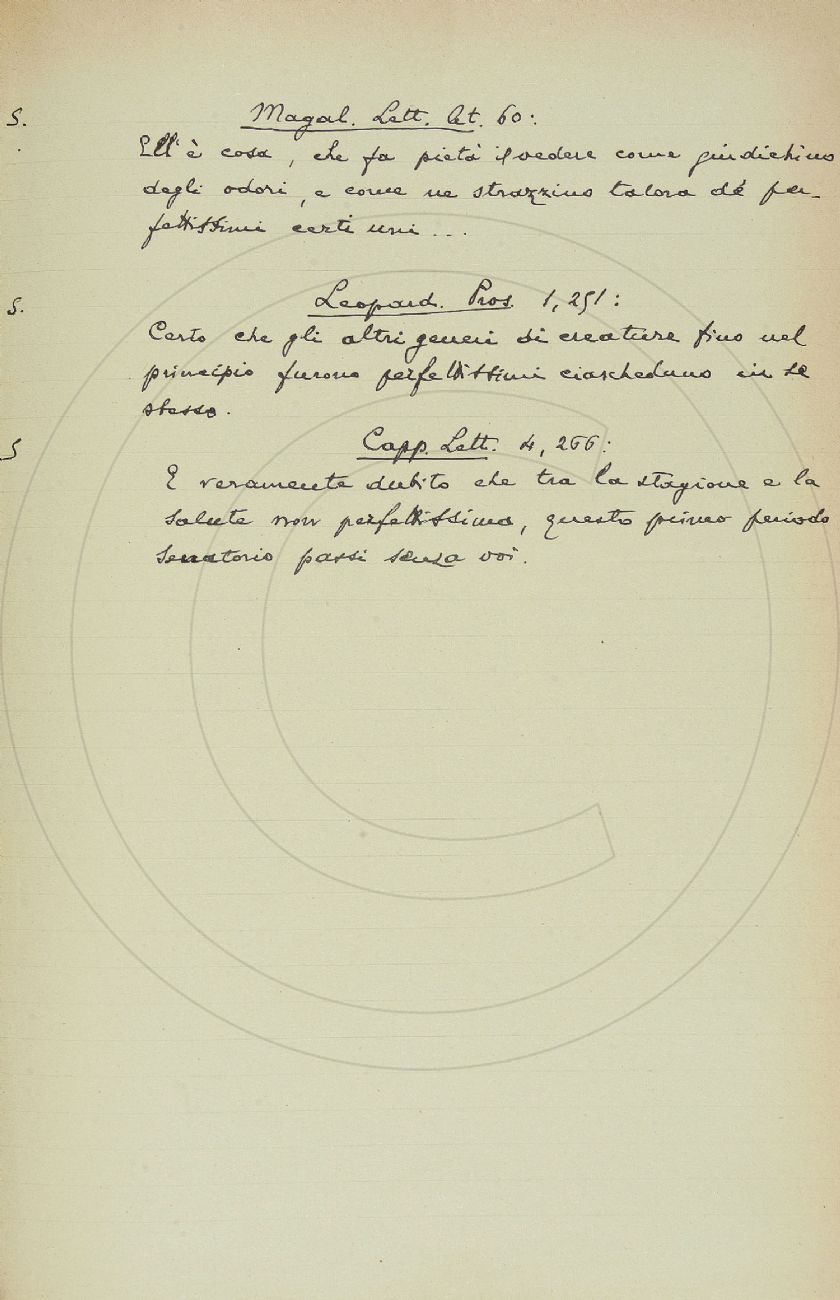 S. Magal. Lett. At. 60:
Ell'è cosa, che fa pietà il vedere come giudichino
degli odori, e come ne strazzino talora dé per-
fettissimi certi uni ...
S. Leopard. Pros. 1, 251:
Certo che gli altri generi di creature fino nel
principio furono perfettissimi ciascheduno in se
stesso.
S Capp. Lett. 4, 266:
E veramente dubito che tra la stagione e la
salute non perfettissima, questo primo periodo
senatorio passi senza voi.